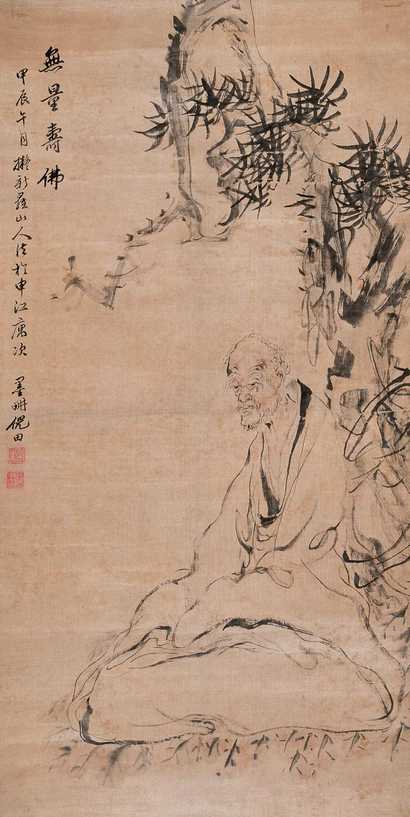 無量壽佛
甲辰午月擬新羅山人法於申江寓次
墨畊倪田